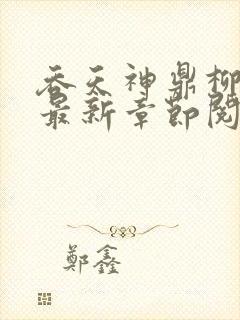 吞天神鼎柳
最新章節閱
鄭鑫